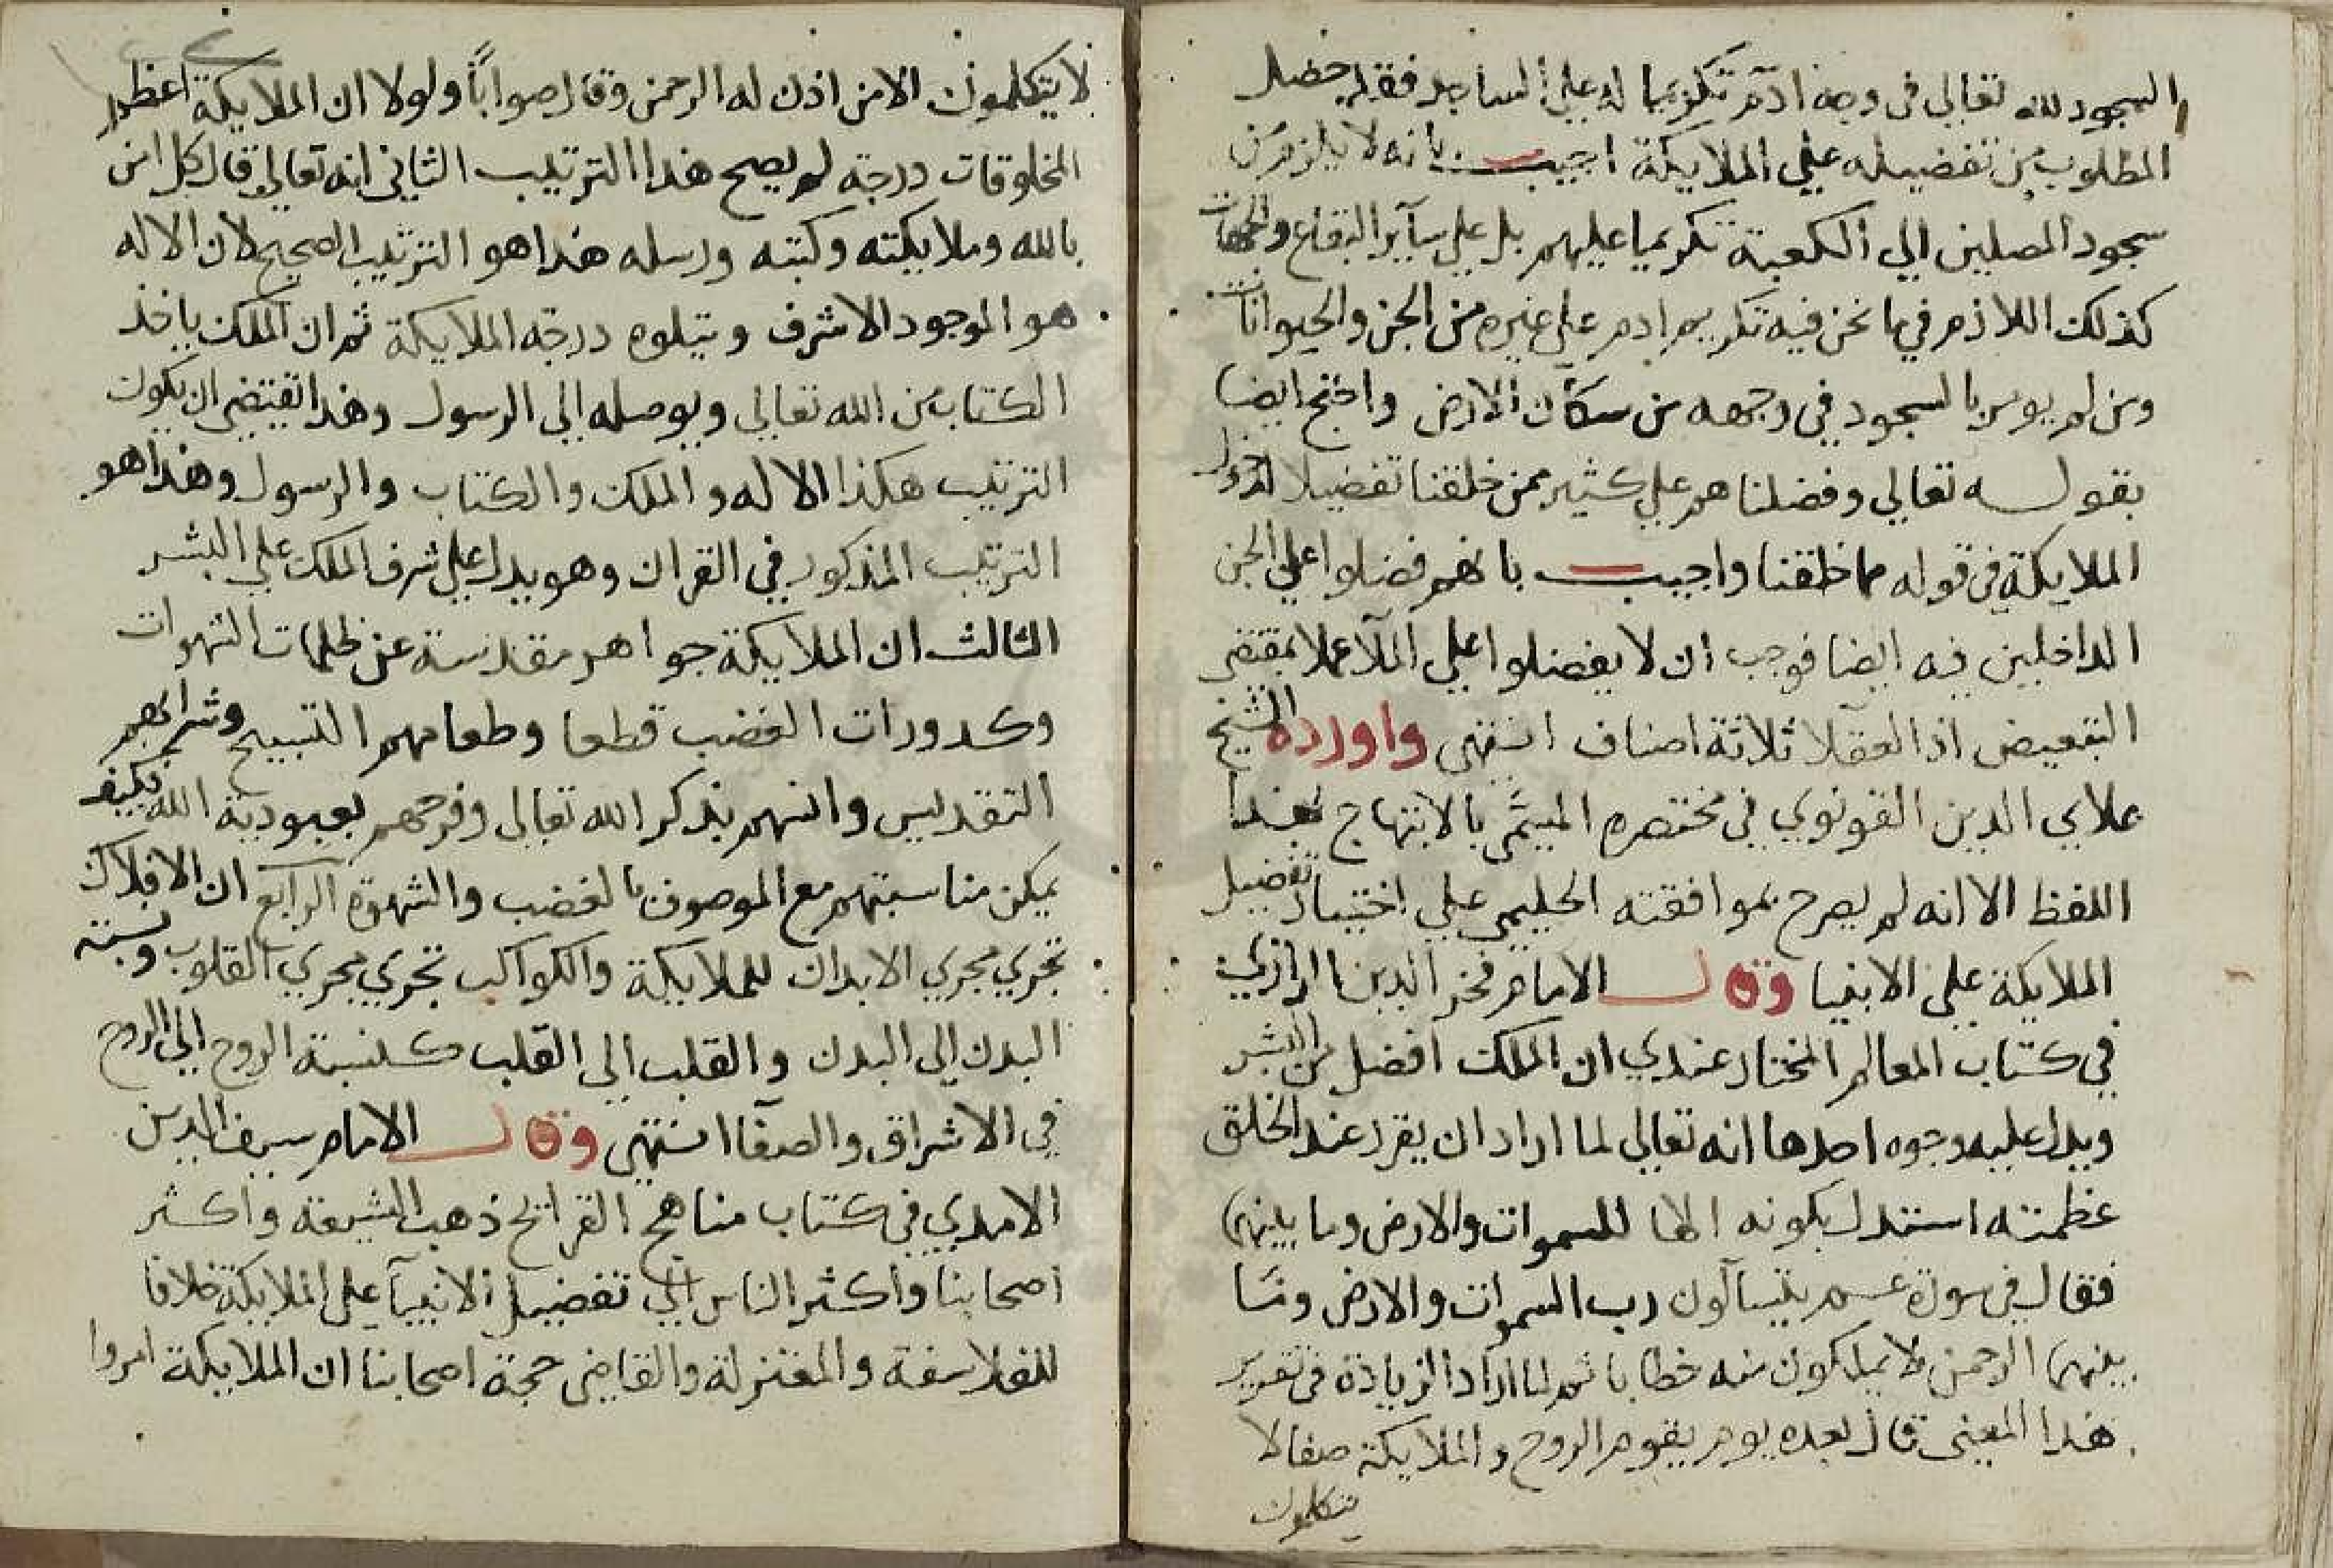 السجود لله تعالى في وجه ادم تكريما له على الساجد فقد حصل
المطلوب من تفضيله على الملايكة اجيب بانه لا يلزم من
سجود المصلين الى الكعبة تكريما عليهم بل على ساير البقاع والجهات
كذلك اللازم في ما نحن فيه تكريم ادم على غيره من الجن والحيوانات
ومن لم يومر بالسجود في وجهه من سكان الارض واحتج ايضا
بقوله تعالى وفضلناهم على كثير ممن خلقنا تفضيلا لدخول
الملايكة في قوله مما خلقنا واجيب بانهم فضلوا على الجن
الداخلين فيه ايضا فوجب ان لا يفضلوا على الملآ عملا بمقتضى
التبعيض اذ العقلا ثلاثة اصناف انتهى واورده الشيخ
علاي الدين القونوي في مختصره المسمى بالابتهاج بهذا
اللفظ الا انه لم يصرح بموافقته الحليمي على اختيار تفضيل
الملايكة على الانبيا وقال الامام فخر الدين الرازي
في كتاب المعالم المختار عندي ان الملك افضل من البشر
ويدل عليه وجوه احدها انه تعالى لما اراد ان يقرر عند الخلق
عظمته استدل بكونه الها للسموات والارض وما بينهما
فقال في سورة عم يتسآلون رب السموات والارض وما
بينهما الرحمن لا يملكون منه خطابا ثم لما اراد الزيادة في تقرير
هذا المعنى قال بعده يوم يقوم الروح والملايكة صفا لا
يتكلمون
لا يتكلمون الا من اذن له الرحمن وقال صوابا ولولا ان الملايكة اعظم
المخلوقات درجة لم يصح هذا الترتيب الثاني انه تعالى قال كل امن
بالله وملايكته وكتبه ورسله هذا هو الترتيب الصحيح لان الاله
هو الموجود الاشرف ويتلوه درجة الملايكة ثم ان الملك ياخذ
الكتاب من الله تعالى ويوصله الى الرسول وهذا يقتضى ان يكون
الترتيب هكذا الاله والملك والكتاب والرسول وهذا هو
الترتيب المذكور في القران وهو يدل على شرف الملك على البشر
الثالث ان الملايكة جواهر مقدسة عن ظلمات الشهوات
وكدورات الغضب قطعا وطعامهم التسبيح وشرابهم
التقديس وانسهم بذكر الله تعالى وفرحهم بعبودية الله فكيف
يمكن مناسبتهم مع الموصوف بالغضب والشهوة الرابع ان الافلاك
تجري مجري الابدان للملايكة والكواكب تجري مجري القلوب ونسبته
البدن الى البدن والقلب الى القلب كنسبة الروح الى الروح
في الاشراق والصفا انتهى وقال الامام سيف الدين
الامدي في كتاب مناهج القرائح ذهب الشيعة واكثر
اصحابنا واكثر الناس الى تفضيل الانبيآ على الملايكة خلافا
للفلاسفة والمعتزلة والقاضى حجة اصحابنا ان الملايكة امروا